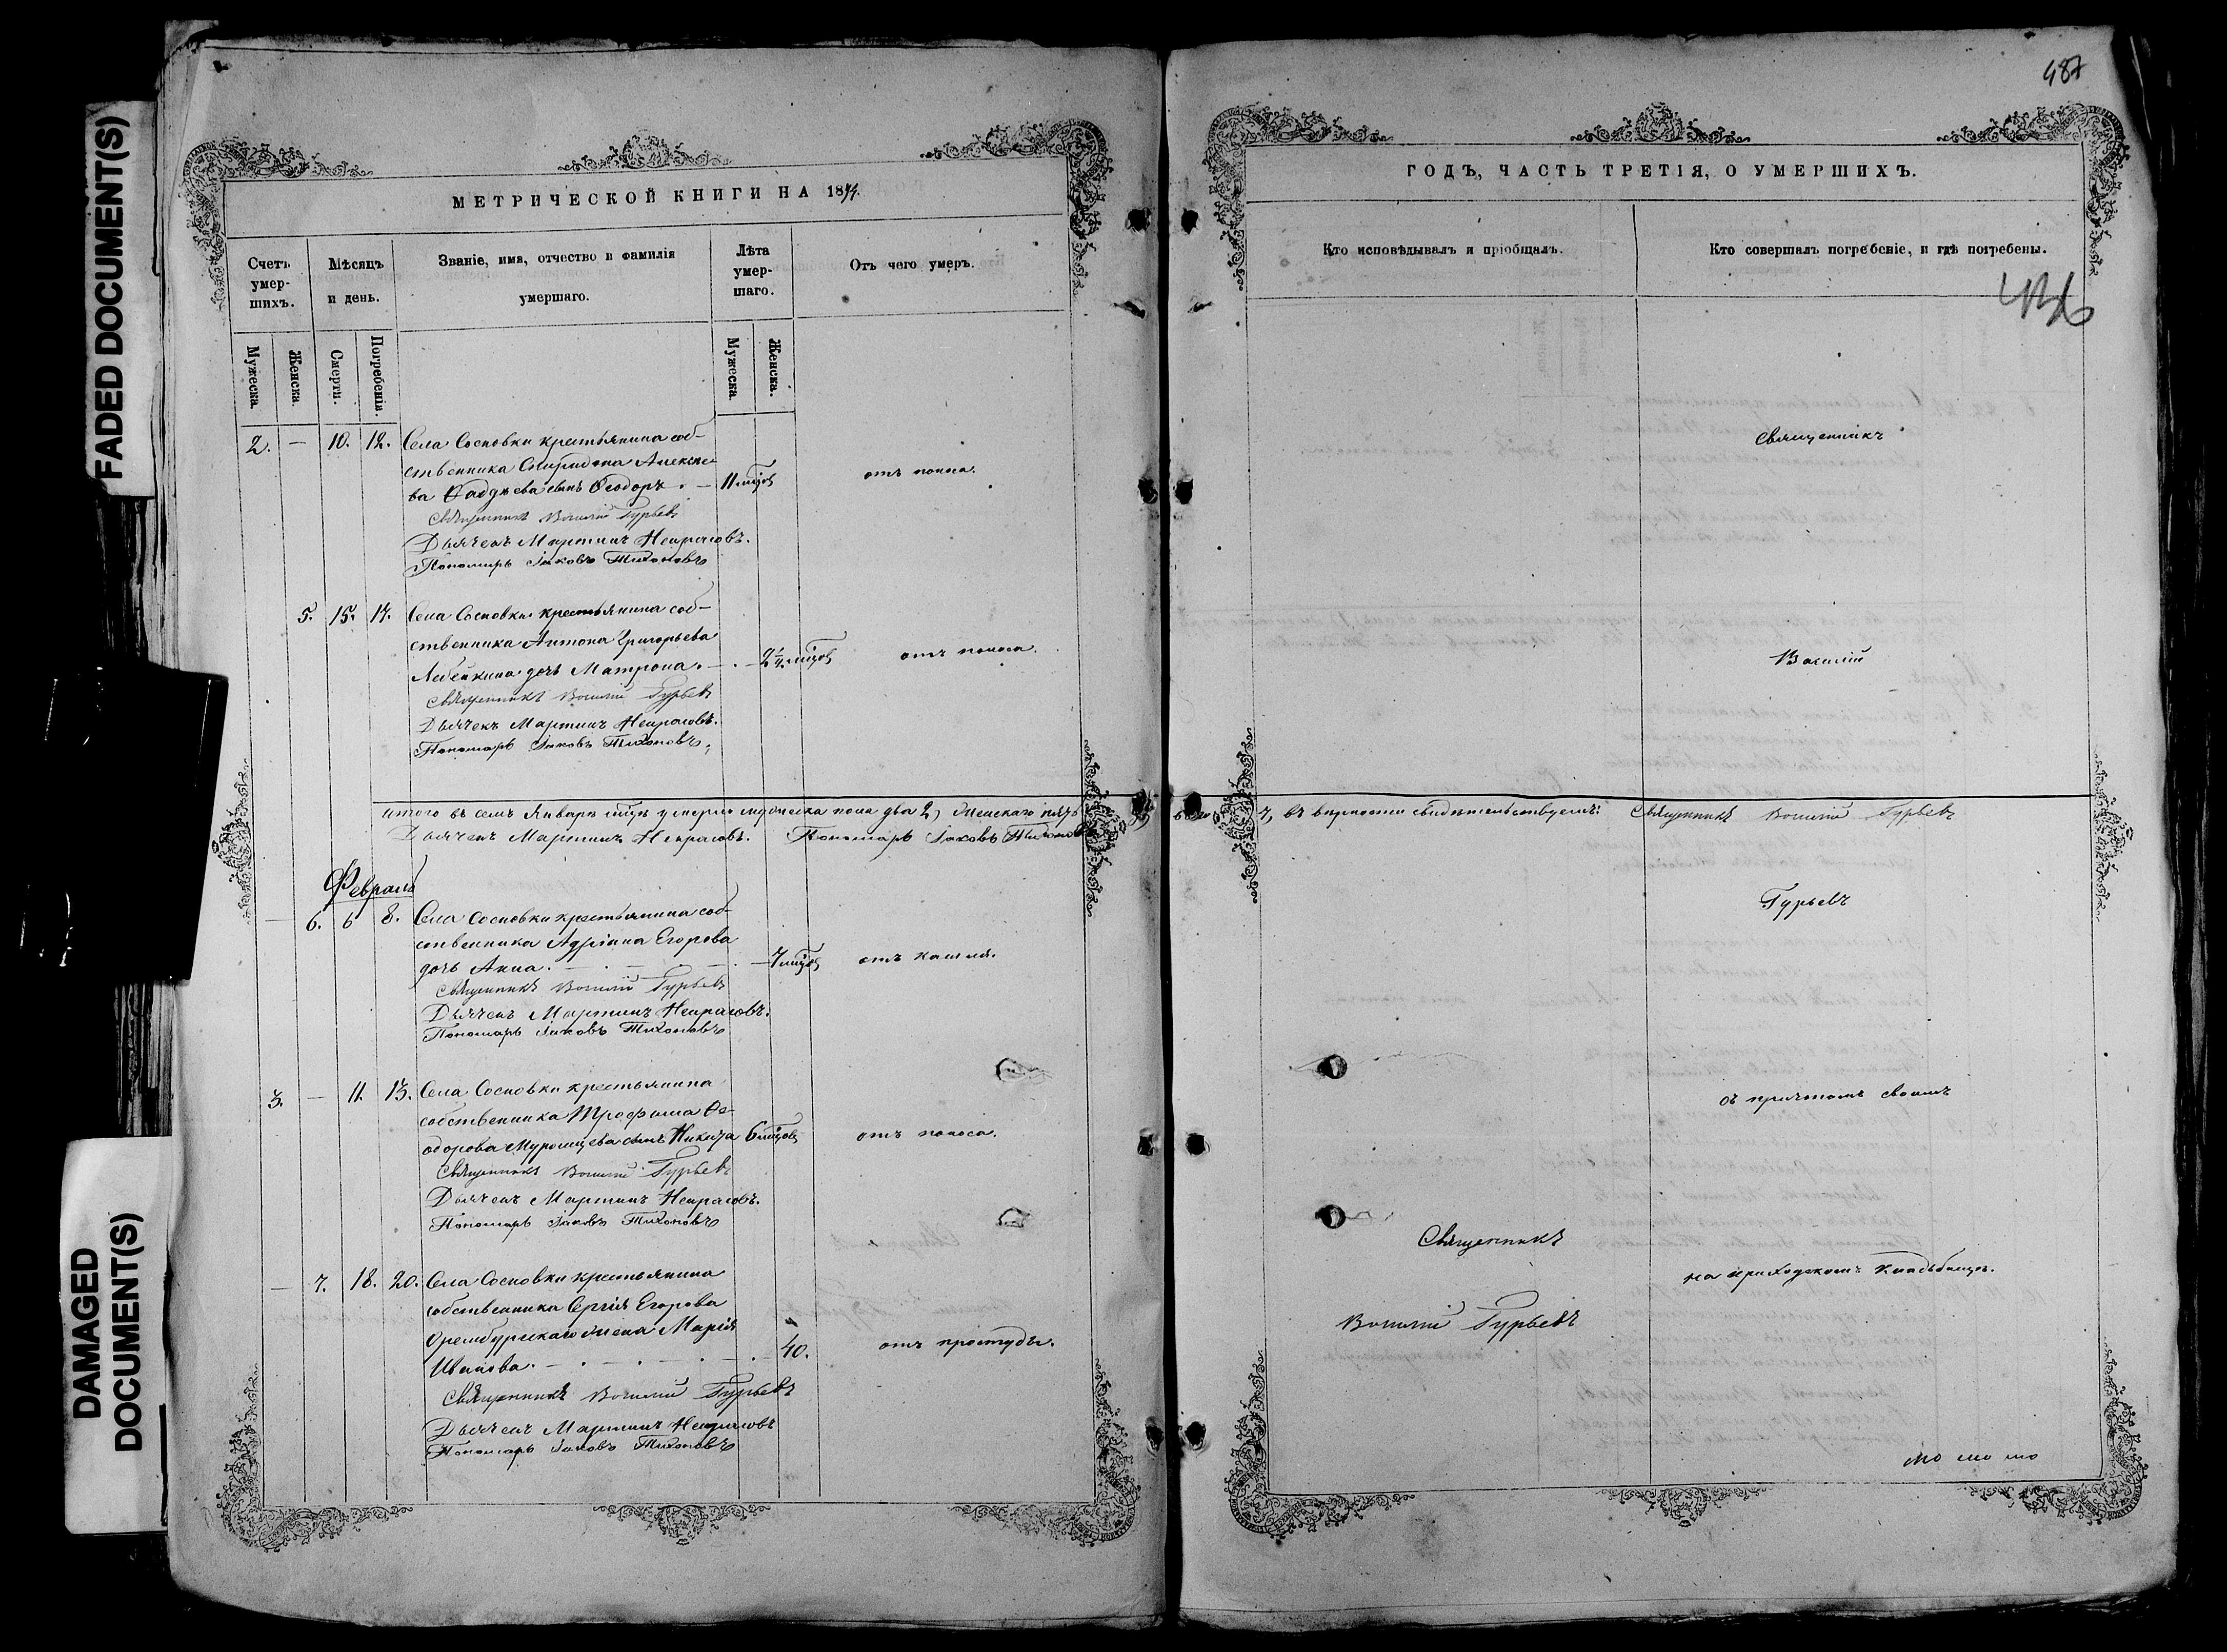 FADED DOCUMENT(S)
DAMAGED
DOCUMENT(S)
МЕТРИЧЕСКОЙ КНИГИ НА 187
Счетъ умер-шихъ.
Мужеска.
Женска.
Мѣсяцъ и день.
Смерти.
Погребенія.
Званіе, имя, отчество и фамилія
умершаго.
Лѣта умер-шаго.
Мужеска.
Женска.
Отъ чего умеръ.
2. — 10. 12. Села Сосновки крестьянина соб-
ственника Спиридона Алексѣе-
ва сынъ Ѳеодоръ. — 11 мѣцовъ отъ поноса.
Священникъ Василій Гурьевъ
Дьячекъ Мартинъ Некрасовъ.
Пономарь Іаковъ Тихоновъ
5. 15. 17. Села Сосновки крестьянина соб-
ственника Антона Григорьева
дочь Матрона. — 2 1/2 мѣцовъ отъ поноса.
Священникъ Василій Гурьевъ
Дьячекъ Мартинъ Некрасовъ.
Пономарь Іаковъ Тихоновъ.
итого въ семъ Январѣ мцѣ умерло мужеска пола два 2, Женскаго пять
Дьячекъ Мартинъ Некрасовъ. Пономарь Іаковъ Тихоновъ
Февраль
— 6. 6 8. Села Сосновки крестьянина соб-
ственника Адріана Егорова
дочь Анна. — 7 мѣцовъ отъ кашля.
Священникъ Василій Гурьевъ
Дьячекъ Мартинъ Некрасовъ.
Пономарь Іаковъ Тихоновъ
3. — 11. 13. Села Сосновки крестьянина
собственника Трофима Ѳе-
одорова Муромцева сынъ Никита 6 мѣцовъ отъ поноса.
Священникъ Василій Гурьевъ
Дьячекъ Мартинъ Некрасовъ.
Пономарь Іаковъ Тихоновъ
— 7. 18. 20. Села Сосновки крестьянина
собственника Сергія Егорова
Оренбурскаго жена Марія
Иванова. — 40. отъ простуды.
Священникъ Василій Гурьевъ
Дьячекъ Мартинъ Некрасовъ
Пономарь Іаковъ Тихоновъ
487
ГОДЪ, ЧАСТЬ ТРЕТІЯ, О УМЕРШИХЪ.
Кто исповѣдывалъ и пріобщалъ.
Кто совершалъ погребеніе, и гдѣ погребены.
Священникъ
Василій
въ вѣрности свидѣтельствуемъ: Священникъ Василій Гурьевъ
Гурьевъ
съ причтомъ своимъ
Священникъ
на приходскомъ кладьбищѣ.
Василій Гурьевъ